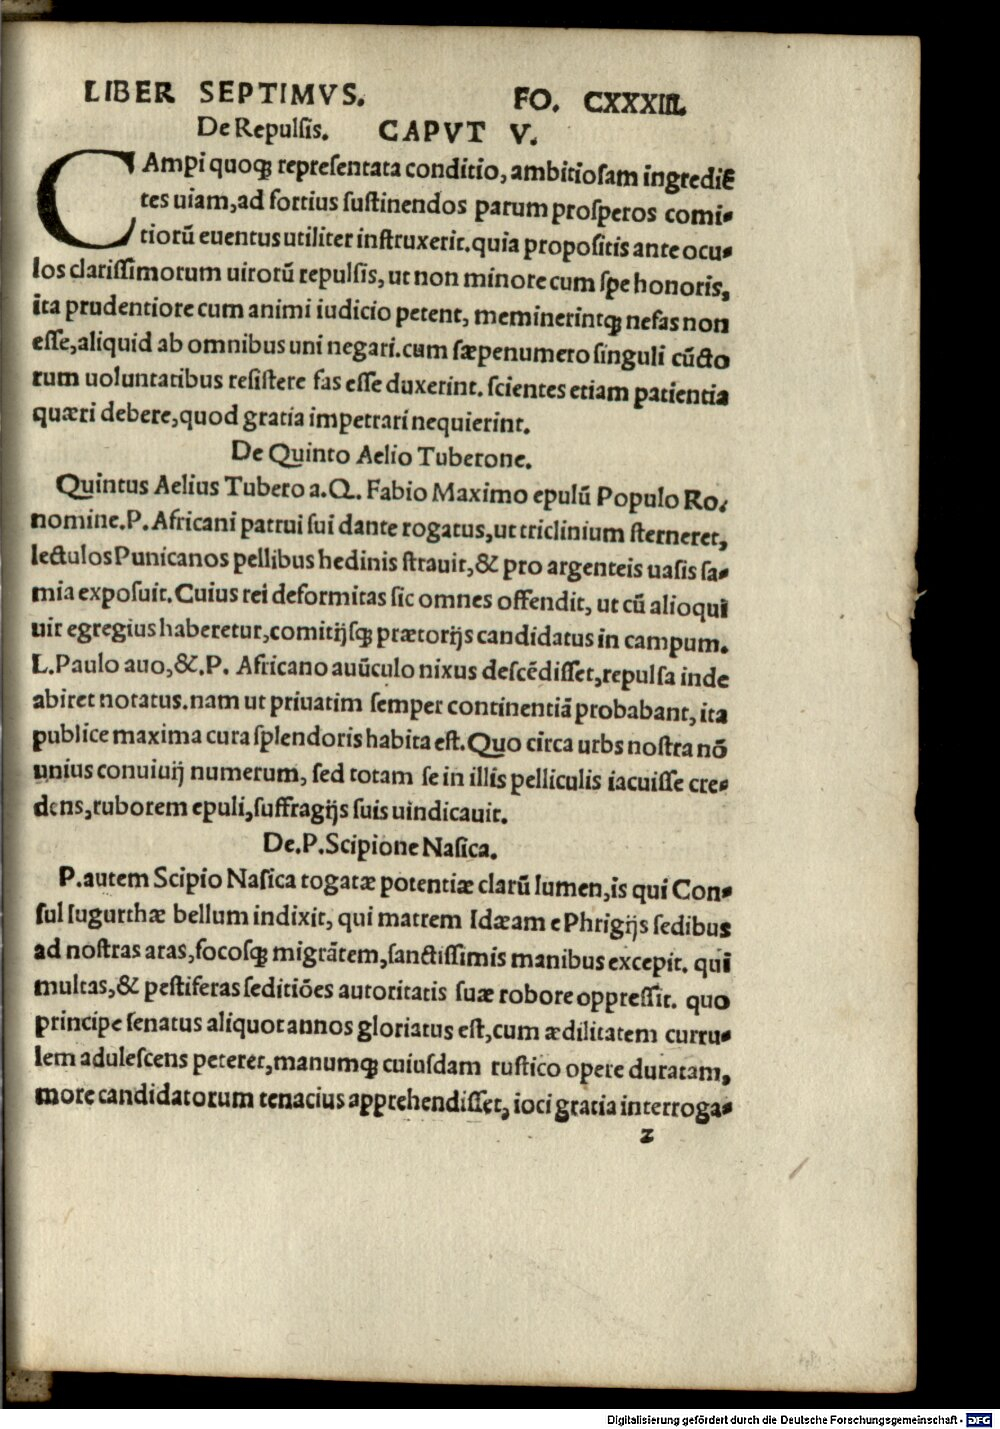 LIBER SEPTIMVS. FO. CXXXIII.
De Repulſis. CAPVT V.
CAmpi quoqꝫ repreſentata conditio, ambitioſam ingrediẽ
tes uiam, ad fortius ſuſtinendos parum proſperos comi-
tiorũ euentus utiliter inſtruxerit. quia propoſitis ante ocu-
los clariſſimorum uirorũ repulſis, ut non minore cum ſpe honoris,
ita prudentiore cum animi iudicio petent, meminerintqꝫ nefas non
eſſe, aliquid ab omnibus uni negari. cum ſæpenumero ſinguli cũcto
rum uoluntatibus reſiſtere fas eſſe duxerint. ſcientes etiam patientia
quæri debere, quod gratia impetrari nequierint.
De Quinto Aelio Tuberone.
Quintus Aelius Tubero a. Q. Fabio Maximo epulũ Populo Ro.
nomine. P. Africani patrui ſui dante rogatus, ut triclinium ſterneret,
lectulos Punicanos pellibus hedinis ſtrauit, & pro argenteis uaſis ſa-
mia expoſuit. Cuius rei deformitas ſic omnes offendit, ut cũ alioqui
uir egregius haberetur, comitijſqꝫ prætorijs candidatus in campum.
L. Paulo auo, &. P. Africano auũculo nixus deſcẽdiſſet, repulſa inde
abiret notatus. nam ut priuatim ſemper continentiã probabant, ita
publice maxima cura ſplendoris habita eſt. Quo circa urbs noſtra nõ
unius conuiuij numerum, ſed totam ſe in illis pelliculis iacuiſſe cre-
dens, ruborem epuli, ſuffragijs ſuis uindicauit.
De. P. Scipione Naſica.
P. autem Scipio Naſica togatæ potentiæ clarũ lumen, is qui Con-
ſul Iugurthæ bellum indixit, qui matrem Idæam e Phrigijs ſedibus
ad noſtras aras, focoſqꝫ migrãtem, ſanctiſſimis manibus excepit. qui
multas, & peſtiferas ſeditiões autoritatis ſuæ robore oppreſſit. quo
principe ſenatus aliquot annos gloriatus eſt, cum ædilitatem curru-
lem aduleſcens peteret, manumqꝫ cuiuſdam ruſtico opere duratam,
more candidatorum tenacius apprehendiſſet, ioci gratia interroga-
z
Digitalisierung gefördert durch die Deutsche Forschungsgemeinschaft - DFG